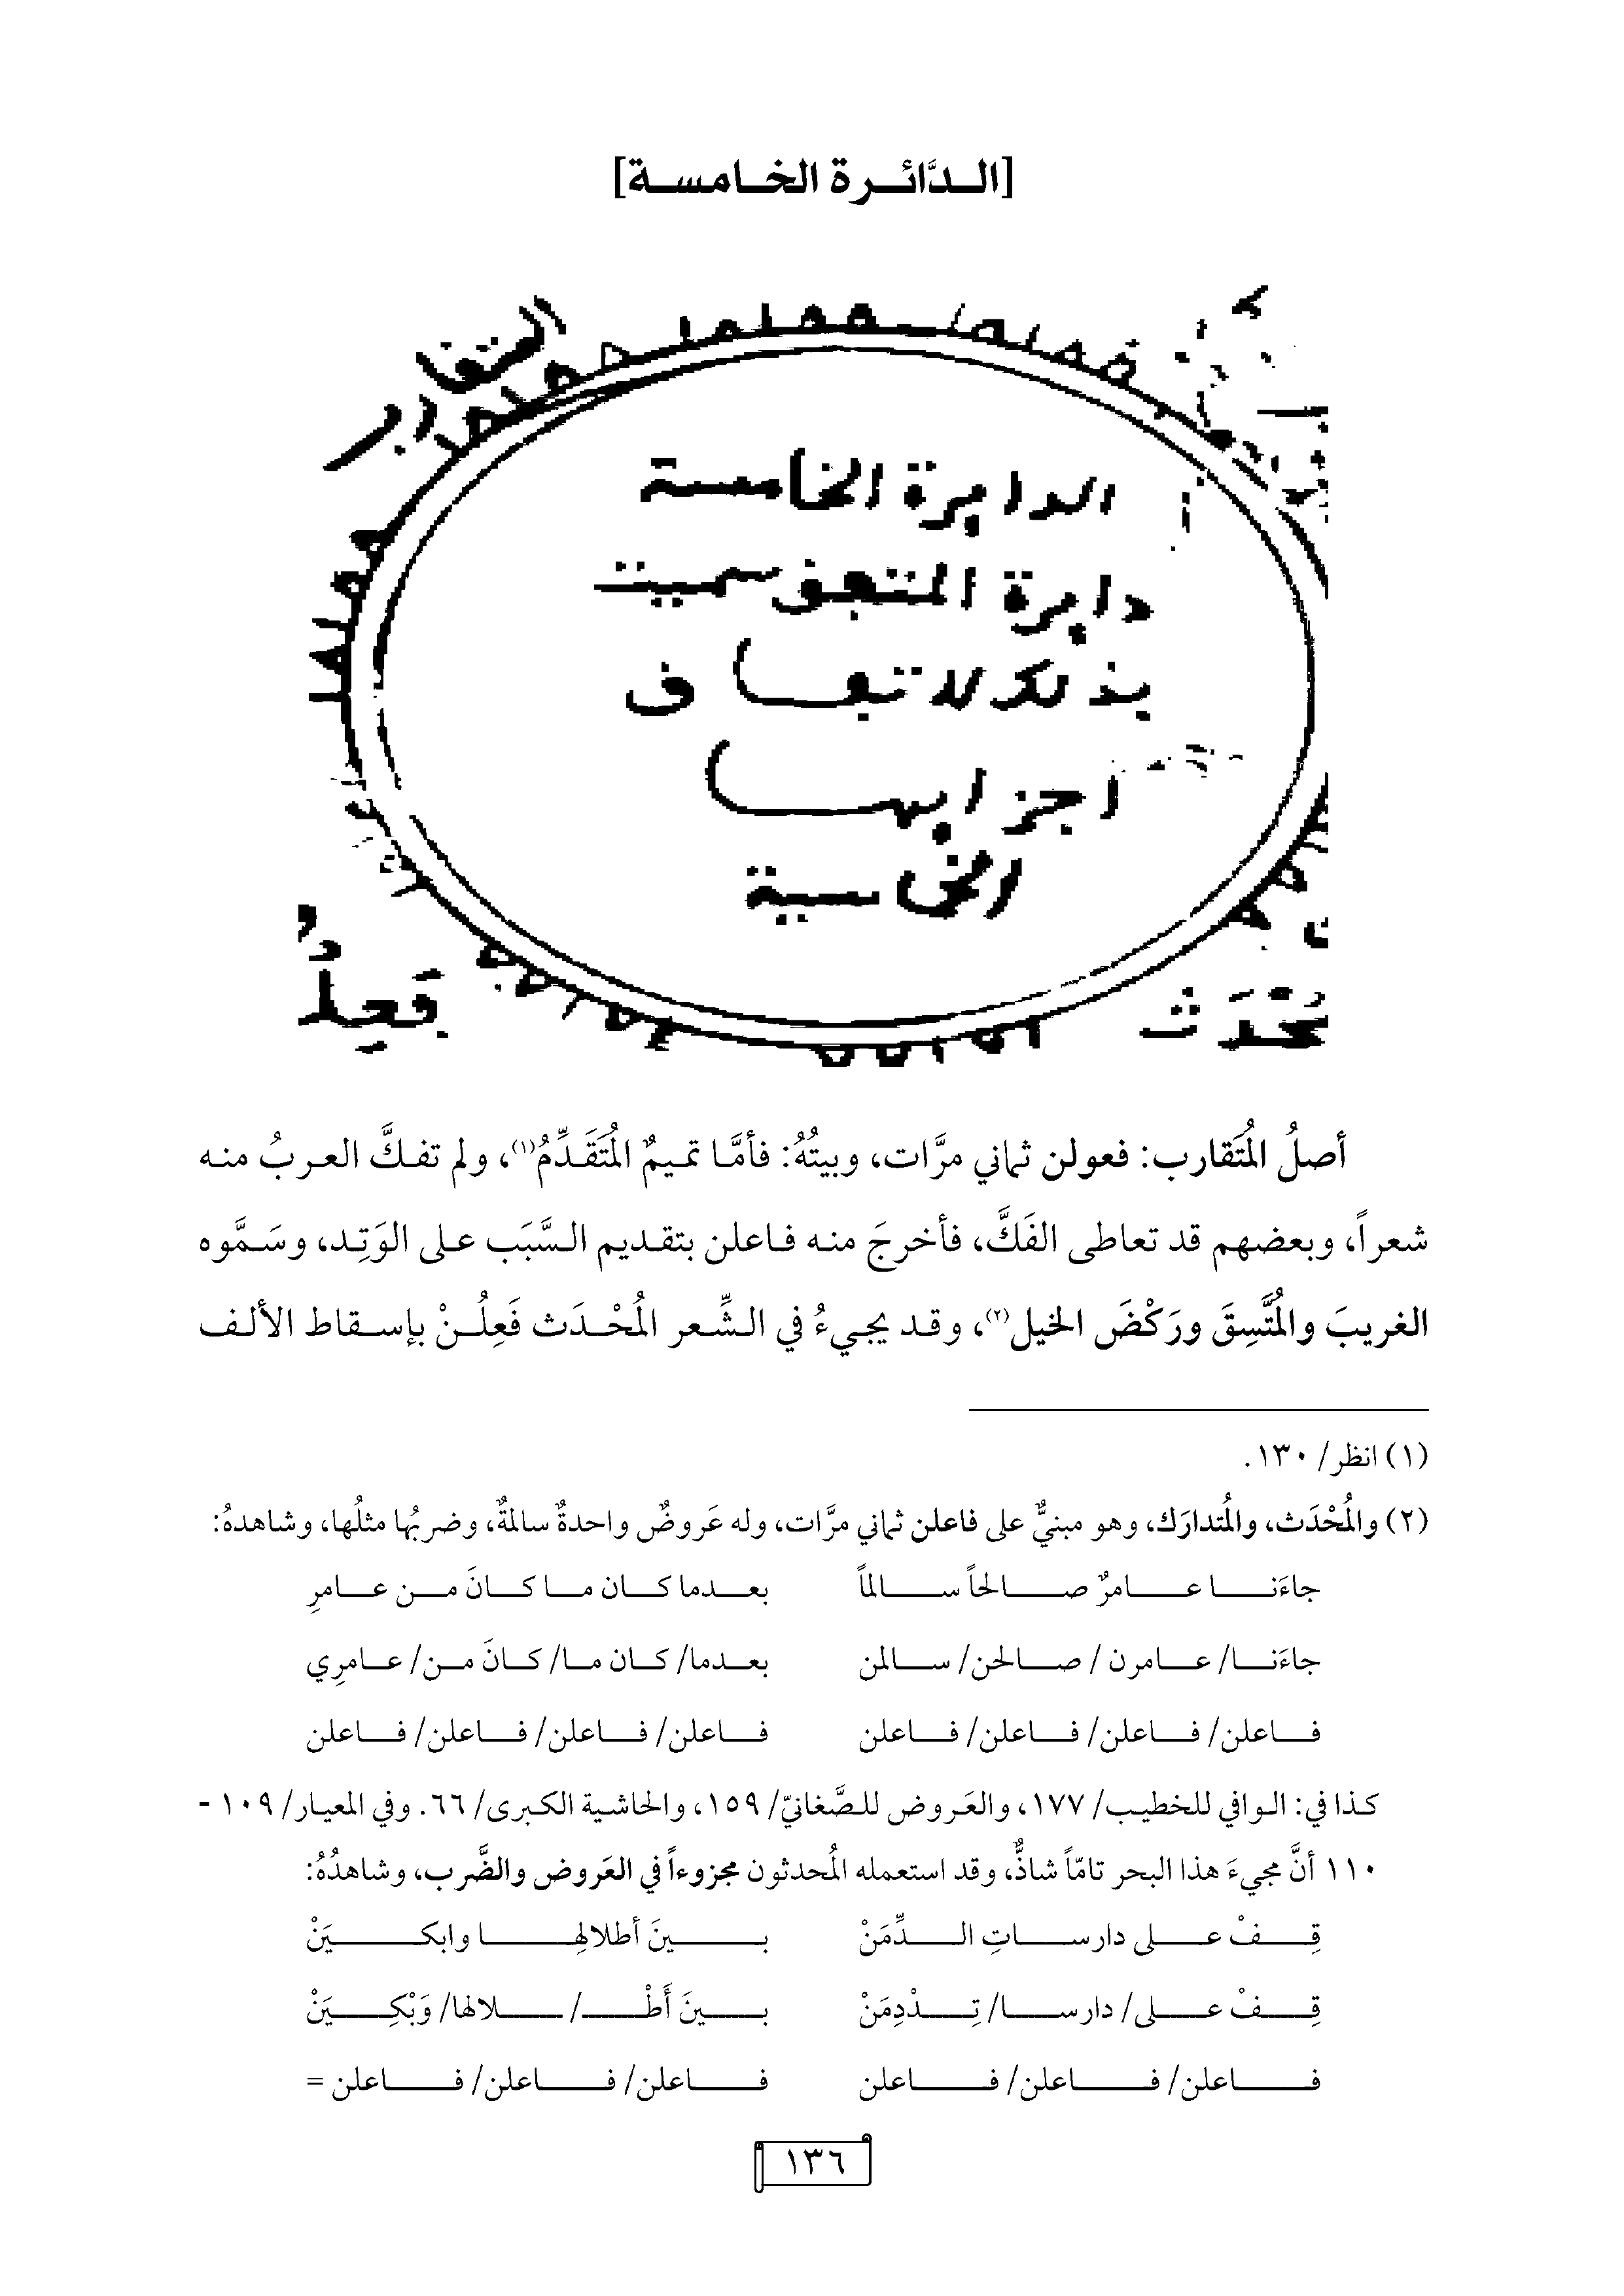 [الـدَّائـرة الخـامسـة]
المتقارب
الدايرة الخامسة
دايرة المتفق سميت
بذلك لاتفاق
اجزايها
الخماسية
فَعِلُن
أصلُ المُتَقارب: فعولن ثماني مرَّات، وبيتُهُ: فأمَّا تميمٌ المُتَقَدِّمُ(١)، ولم تفكَّ العربُ منه
شعراً، وبعضهم قد تعاطى الفَكَّ، فأخرجَ منه فاعلن بتقديم السَّبَب على الوَتِد، وسَمَّوه
الغريبَ والمُتَّسِقَ ورَكْضَ الخيل(٢)، وقد يجيءُ في الشِّعر المُحْدَث فَعِلُنْ بإسقاط الألف
(١) انظر/ ١٣٠.
(٢) والمُحْدَث، والمُتدارَك، وهو مبنيٌّ على فاعلن ثماني مرَّات، وله عَروضٌ واحدةٌ سالمةٌ، وضربُها مثلُها، وشاهدهُ:
جاءَنا عامرٌ صالحاً سالماً بعدما كان ما كانَ من عامرِ
جاءَنا/ عامرن/ صالحن/ سالمن بعدما/ كان ما/ كانَ من/ عامرِي
فاعلن/ فاعلن/ فاعلن/ فاعلن فاعلن/ فاعلن/ فاعلن/ فاعلن
كذا في: الوافي للخطيب/ ١٧٧، والعَروض للصَّغانيّ/ ١٥٩، والحاشية الكبرى/ ٦٦. وفي المعيار/ ١٠٩ -
١١٠ أنَّ مجيءَ هذا البحر تامّاً شاذٌّ، وقد استعمله المُحدثون مجزوءاً في العَروض والضَّرب، وشاهدُهُ:
قِفْ على دارساتِ الدِّمَنْ بينَ أطلالهِا وابكيَنْ
قِفْ على/ دارسا/ تِدْدِمَنْ بينَ أَطْـ/ ـلالها/ وَبْكِيَنْ
فاعلن/ فاعلن/ فاعلن فاعلن/ فاعلن/ فاعلن =
١٣٦